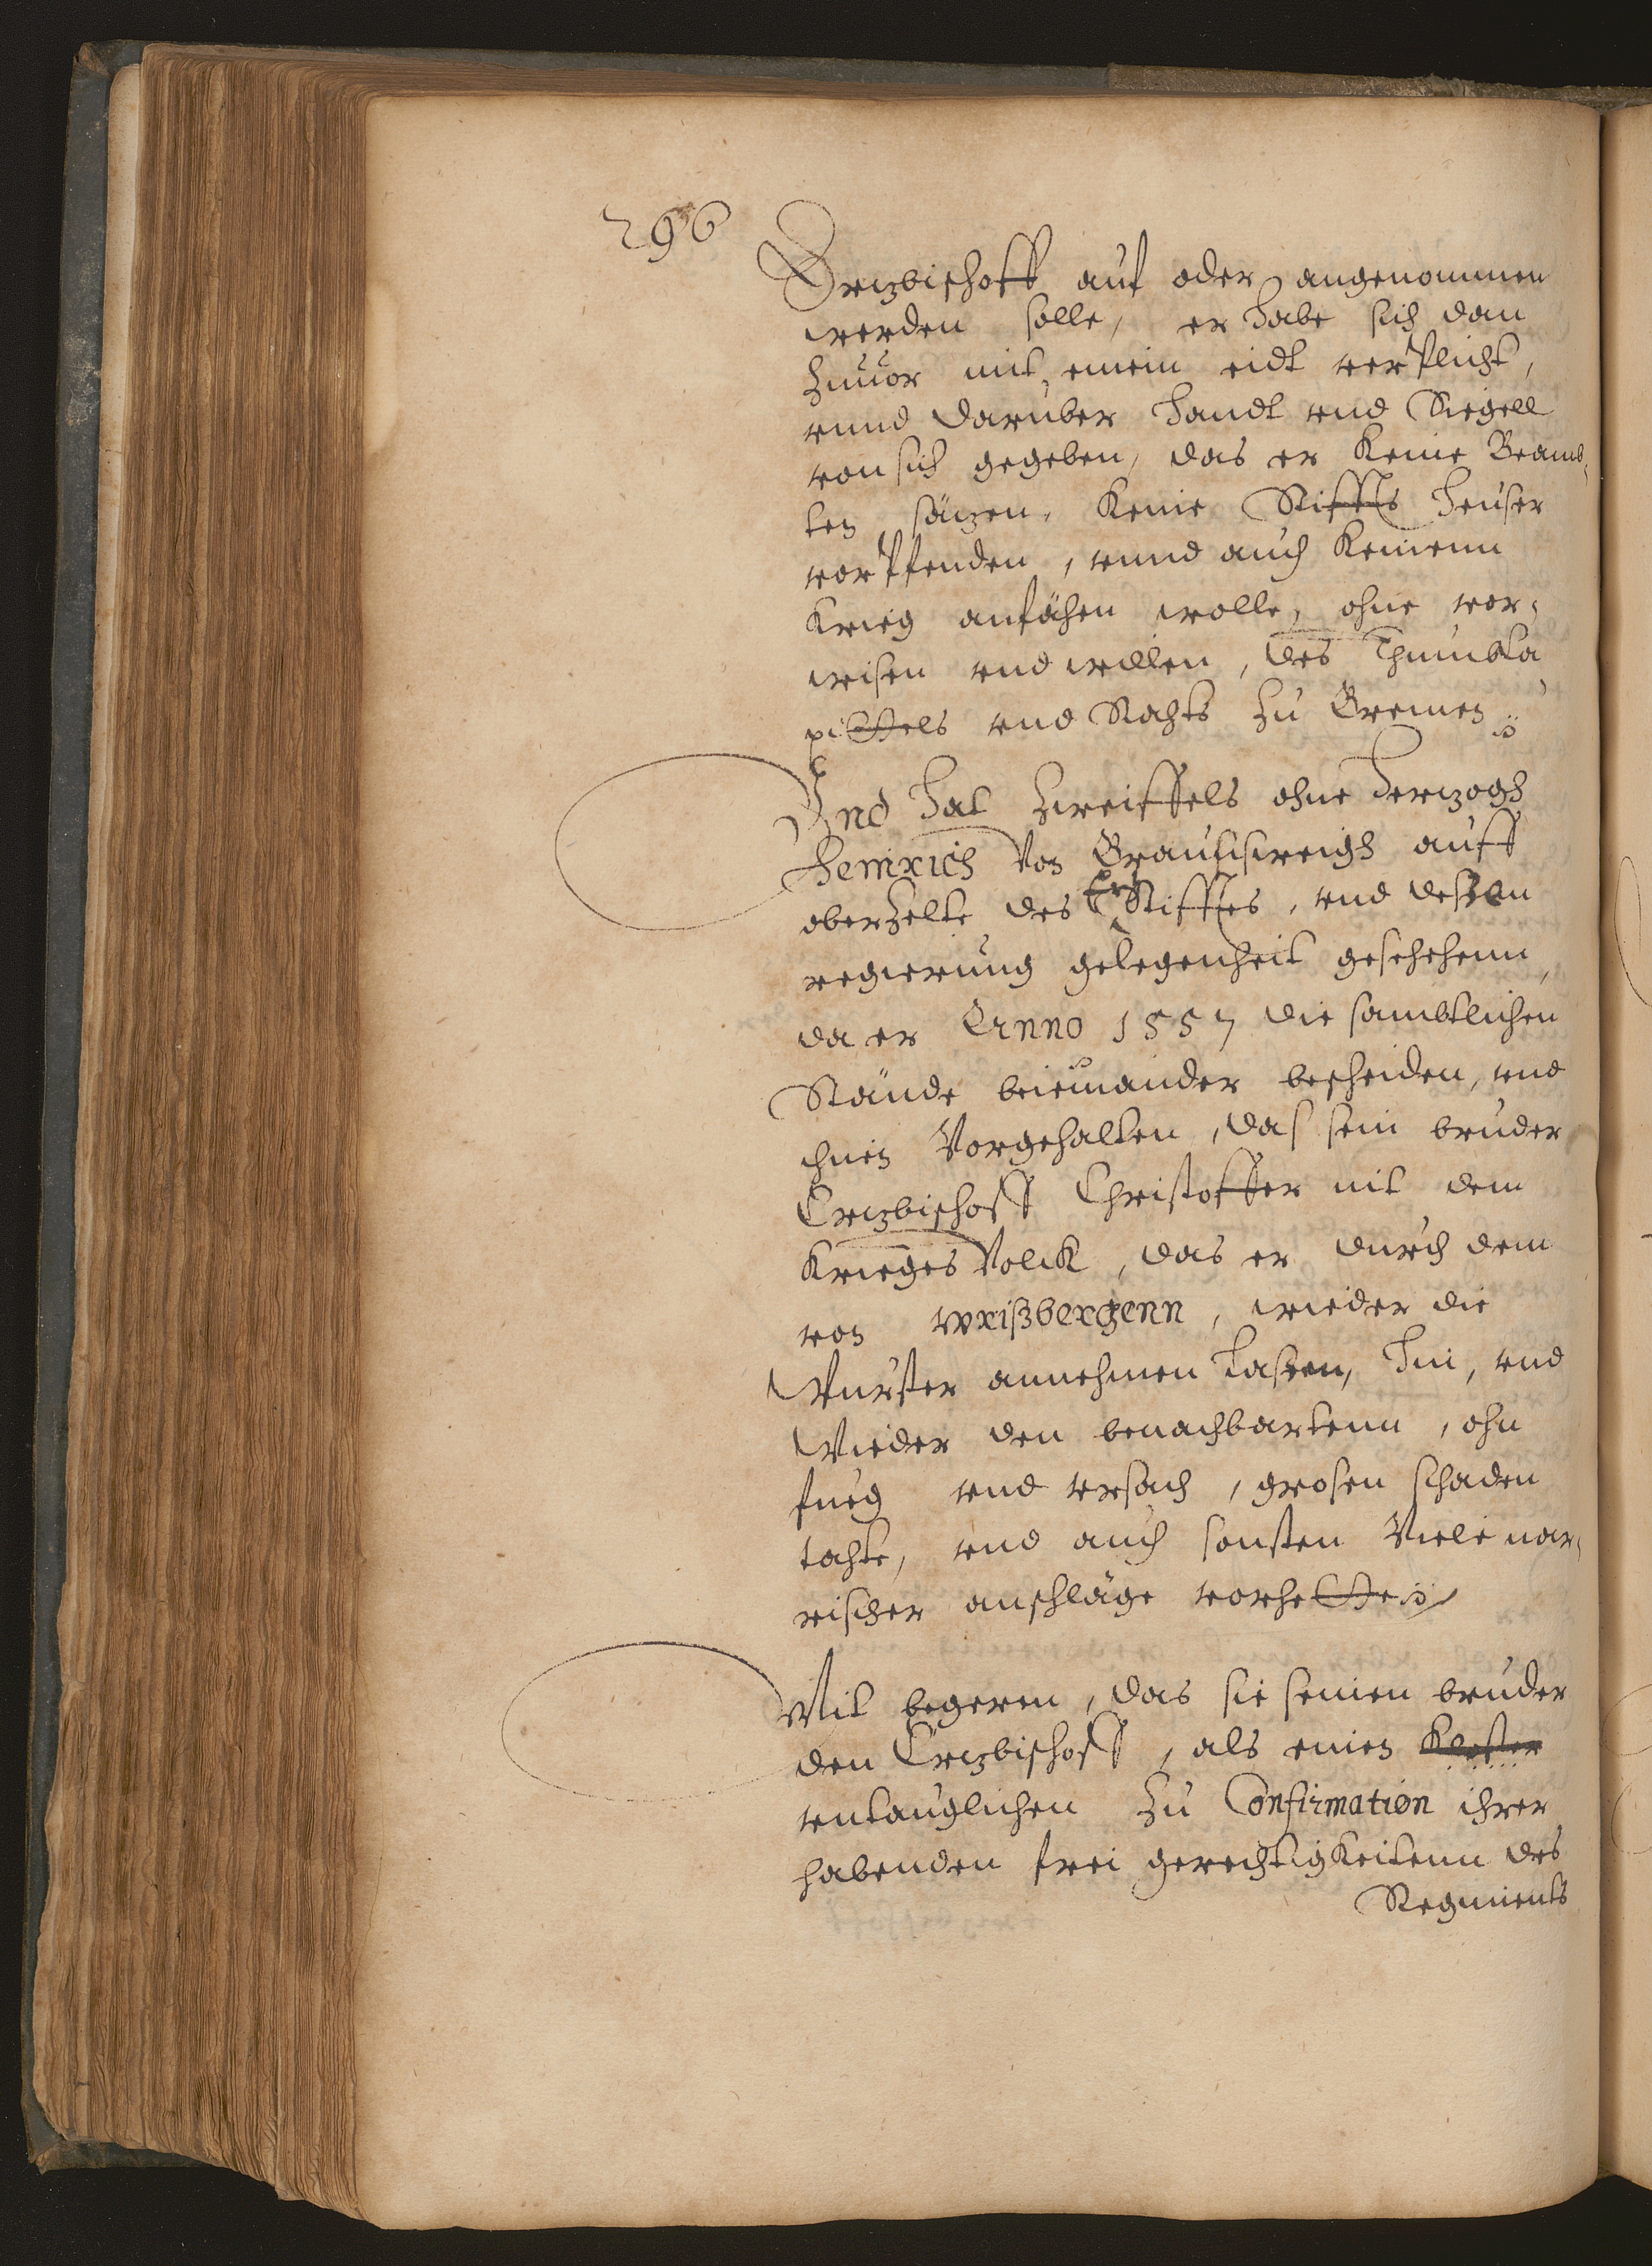 296
Ertzbischoff auf oder angenommen
werden solle, er habe sich dan
zuuor mit einem eidt verplicht,
vnnd darüber handt vnd Siegell
von sich gegeben, das er keine Beamb,
ten sätzen, keine Stiffts heuser
vorpfenden, vnnd auch keinenn
krieg anfähen wolle, ohne vor,
wissen vnd willen, des Thumbka
pittels vnd Rahts zu Bremen
Vnd hat zweiffels ohne Hertzogh
Heinrich von Braunschweigh auff
oberzelte des Ertz Stifftes, vnd dessen
regierung gelegenheit geschehenn,
da er Anno 1557 die sambtlichen
Stände beieinander bescheiden, vnd
ihnen Vorgehalten, das sein bruder
Ertzbischoff Christoffer mit dem
Krieges Volck, das er durch dem
von wrißbergenn, wieder die
Wurster annehmen lassen, hin, vnd
Wieder den benachbartenn, ohn
fueg vnd vrsach, grosen schaden
tahte, vnd auch sonsten Viele nar,
rischer anschläge vorhette
Mit begeren, das sie seinen bruder
den Ertzbischoff, als einen Kloster
vntauglichen zu Confirmation ihrer
habenden frei gerechtigkeitenn des
Regiments